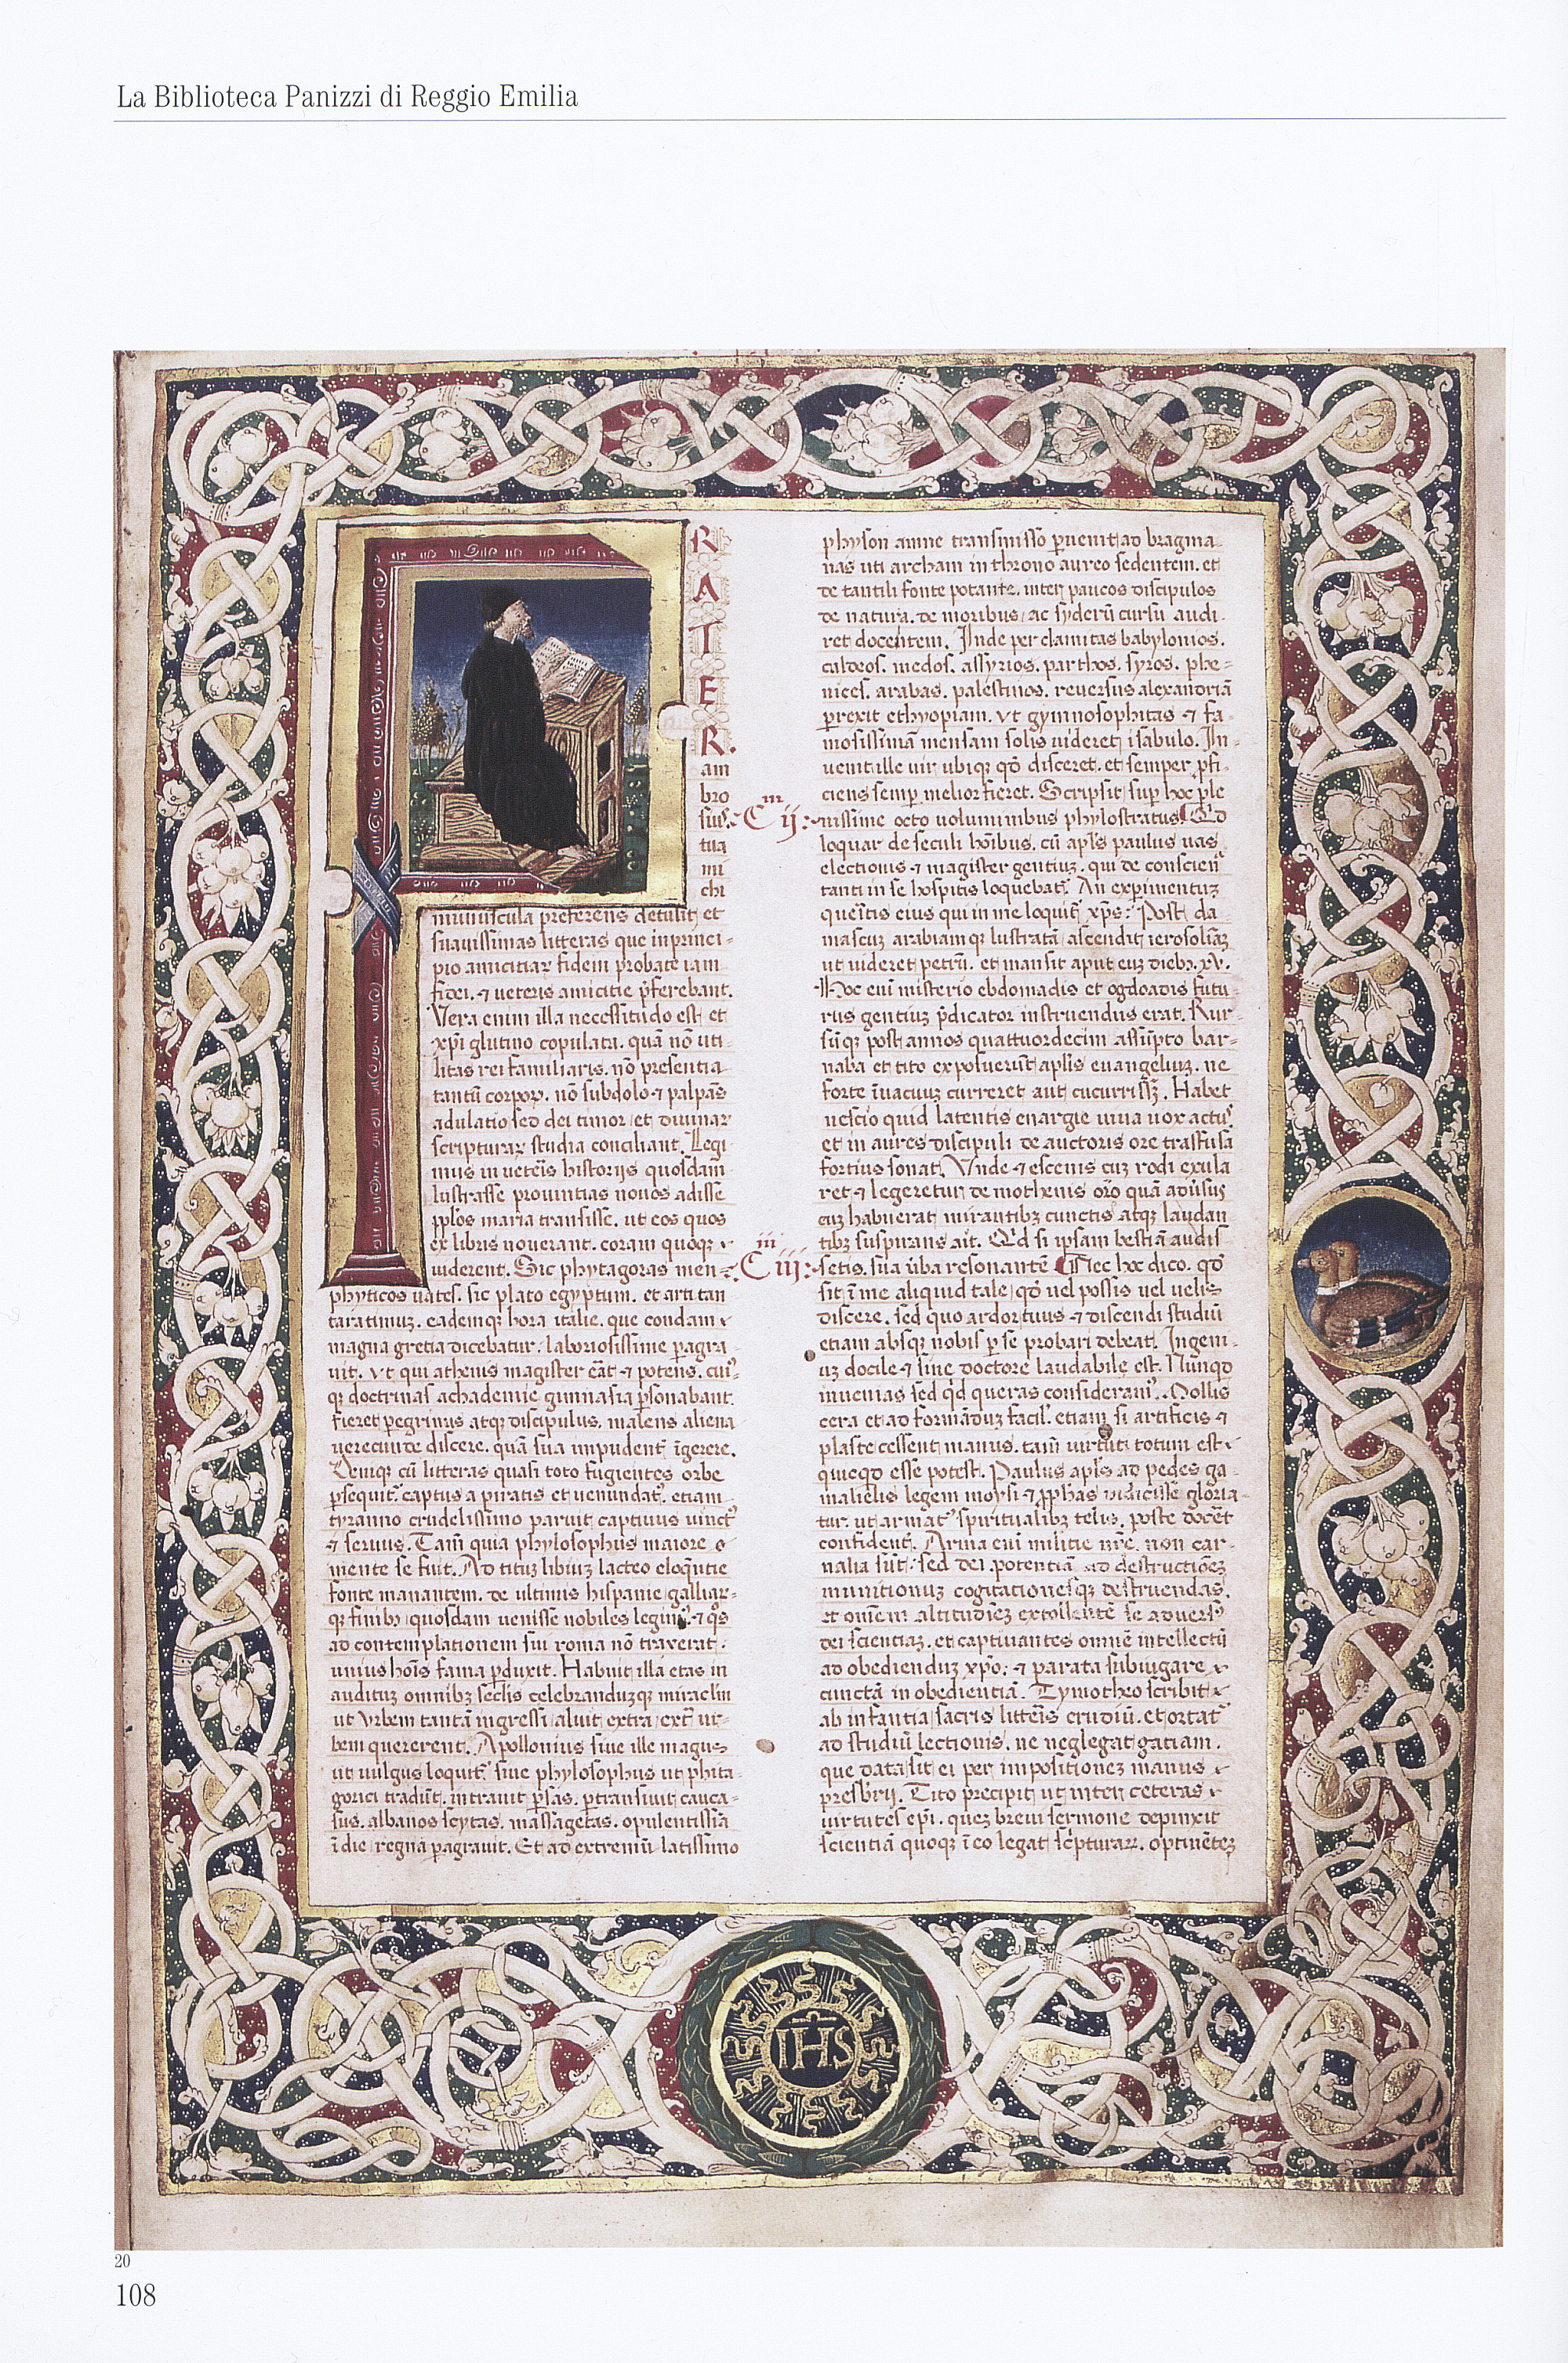 La Biblioteca Panizzi di Reggio Emilia
FRATER.
am
bro
sius.
tua
mi
chi
munuscula preferens detulit et
suavissimas litteras que in princi-
pio amicitiaꝝ fidem probate iam
fidei. ⁊ veteris amicitie p̄ferebant.
Vera enim illa necessitudo est et
xp̄i glutino copulata. quā nō uti-
litas rei familiaris. nō presentia
tantū corpoꝝ. nō subdola ⁊ palpās
adulatio sed dei timor et divinaꝝ
scripturaꝝ studia conciliant. Legi-
mus in ueteris historijs quosdam
lustrasse prouintias nouos adisse
pplōs maria transisse. ut eos quos
ex libris nouerant. coram quoqꝫ
uiderent. Sic phytagoras men-
phyticos uates. sic plato egyptum. et arcitan
taratinuꝫ. eademqꝫ hora italie. que condam
magna gretia dicebatur. laboriosissime ꝑagra-
uit. Vt qui athenis magister erāt ⁊ potens. cui9
qꝫ doctrinas achademie gimnasia ꝑsonabant.
fieret ꝑegrinus atqꝫ discipulus. malens aliena
uerecunde discere. quā sua impudent̄ īgerere.
Deniqꝫ cū litteras quasi toto fugientes orbe
ꝑsequit. captus a piratis et uenundat9. etiam
tyranno crudelissimo paruit captiuus uinct9
⁊ seruus. Tam̄ quia phylosophus maiore
mente se fuit. Ad tituꝫ libiuꝫ lacteo eloq̄ntie
fonte manantem. de ultimis hispanie galliaꝝ-
qꝫ finibꝫ quosdam uenisse nobiles legim9. ⁊ q̄s
ad contemplationem sui roma nō traxerat.
unius hoīs fama ꝑduxit. Habuit illa etas in
audituꝫ omnibꝫ seclis celebranduꝫqꝫ miraclm
ut Vrbem tantā ingressi aliut extra ext̄ ur-
bem quererent. Apollonius siue ille magus
ut uulgus loquit. siue phylosophus ut phita-
gorici tradūt. intrauit ꝑsas. ꝑtransiuit cauca-
sus. albanos scytas. massagetas. opulentissīa
īdie regna ꝑagrauit. Et ad extremū latissimo
physon amne transmisso ꝑuenit ad bragma-
nas uti archam in throno aureo sedentem. et
de tantili fonte potantē. inter paucos discipulos
de natura. de moribus. ac syderū cursu audi-
ret docentem. Inde per elamitas babylonios.
caldeos. medos. assyrios. parthos. syros. phe-
nices. arabas. palestinos. reuersus alexandriā
ꝑrexit ethyopiam. Vt gymnosophitas ⁊ fa-
mosissimā mensam solis uideret ī sabulo. In-
uenit ille vir ubiqꝫ qđ disceret. et semper ꝓfi-
ciens semꝑ melior fieret. Scripsit suꝑ hoc ple
Cm ij. nissime octo voluminibus phylostratus. Qđ
loquar de seculi hoībus. cū apl̄s paulus uas
electionis ⁊ magister gentiuꝫ. qui de conscien
tanti in se hospitis loquebat. An experimentuꝫ
queritis eius qui in me loquit xp̄s. Post da-
mascuꝫ arabiamqꝫ lustratā ascendit ierosolimā
ut uideret petrū. et mansit aput euꝫ diebꝫ xv.
Hoc enī misterio ebdomadis et ogdoadis futu-
rus gentiuꝫ p̄dicator instruendus erat. Rur-
sūqꝫ post annos quattuordecim assūpto bar-
naba et tito exposuerit apl̄is euangeliuꝫ. ne
forte ī uacuuꝫ curreret aut cucurrissꝫ. Habet
nescio quid latentis energie uiua uox actus
et in aures discipuli de auctoris ore trāsfusa
fortius sonat. Vnde ⁊ escenis cuꝫ rodi exula-
ret ⁊ legeretur de mothenis orō quā aduisus
eꝫ habuerat mirantibꝫ cunctis atqꝫ laudan
tibꝫ suspirans ait. Qđ si ipsam bestiā audis-
Cm iij. setis. sua ūba resonantē. Nec hoc dico. qđ
sit ī me aliquid tale qđ uel possis uel uelis
discere. sed quo ardor tuus ⁊ discendi studiū
etiam absqꝫ nobis ꝑ se probari debeat. Ingeni-
uꝫ docile ⁊ sine doctore laudabile est. Nunqđ
inuenias sed qd̄ queras consideram9. Mollis
cera et ad formāduꝫ facil. etiam si artificis ⁊
plaste cessent manus. tam̄ uirtuti totum est
quicqđ esse potest. Paulus apl̄s ad pedes ga-
malielis legem moysi ⁊ ꝓphas didicisse gloria-
tur. ut armat9 spiritualibꝫ telis. poste docēt
confident. Arma enī militie nr̄e. non car-
nalia sūt. sed dei potentia ad destructiōeꝫ
munitionuꝫ cogitationesqꝫ destruendas.
et omēm altitudieꝫ extollentē se aduers9
dei scientiaꝫ. et captiuantes omnē intellectū
ad obedienduꝫ xp̄o. ⁊ parata subiugare
cunctā in obedientiā. Tymotheo scribit
ab infantia sacris litteris erudiū. et ortat
ad studiū lectionis. ne neglegat gatiam.
que data sit ei per impositioneꝫ manus
presbrij. Tito precipit ut inter ceteras
uirtutes epī. queꝫ breui sermone depinxit
scientiā quoqꝫ ī eo legat sc̄pturaꝝ. optinēteꝫ
IHS
20
108